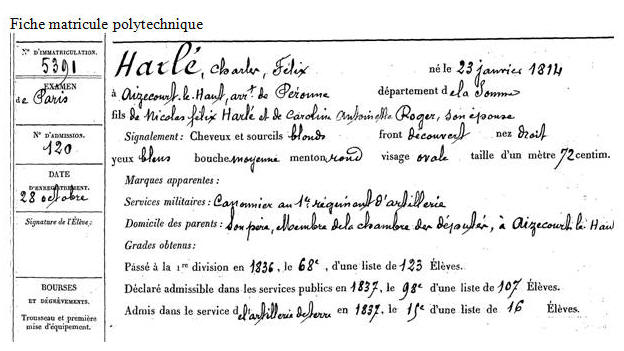 Fiche matricule polytechnique
N° D'IMMATRICULATION.
5391
EXAMEN
de Paris
N° D'ADMISSION.
120
DATE
D'ENREGISTREMENT.
28 octobre
Signature de l'Élève:
BOURSES
ET DÉGRÈVEMENTS.
Trousseau et première
mise d'équipement.
Harlé, Charles, Félix né le 23 janvier 1814
à Aizecourt-le-Haut, arrt de Péronne département de la Somme
fils de Nicolas Félix Harlé et de Caroline Antoinette Roger, son épouse
Signalement: Cheveux et sourcils blonds front découvert nez droit
yeux bleus bouche moyenne menton rond visage ovale taille d'un mètre 72 centim.
Marques apparentes:
Services militaires: Canonnier au 1er régiment d'artillerie
Domicile des parents: Son père, Membre de la chambre des députés, à Aizecourt-le-Hau
Grades obtenus:
Passé à la 1re division en 1836, le 68e, d'une liste de 123 Élèves.
Déclaré admissible dans les services publics en 1837, le 98e d'une liste de 107 Élèves.
Admis dans le service de l'artillerie de terre en 1837, le 15e d'une liste de 16 Élèves.